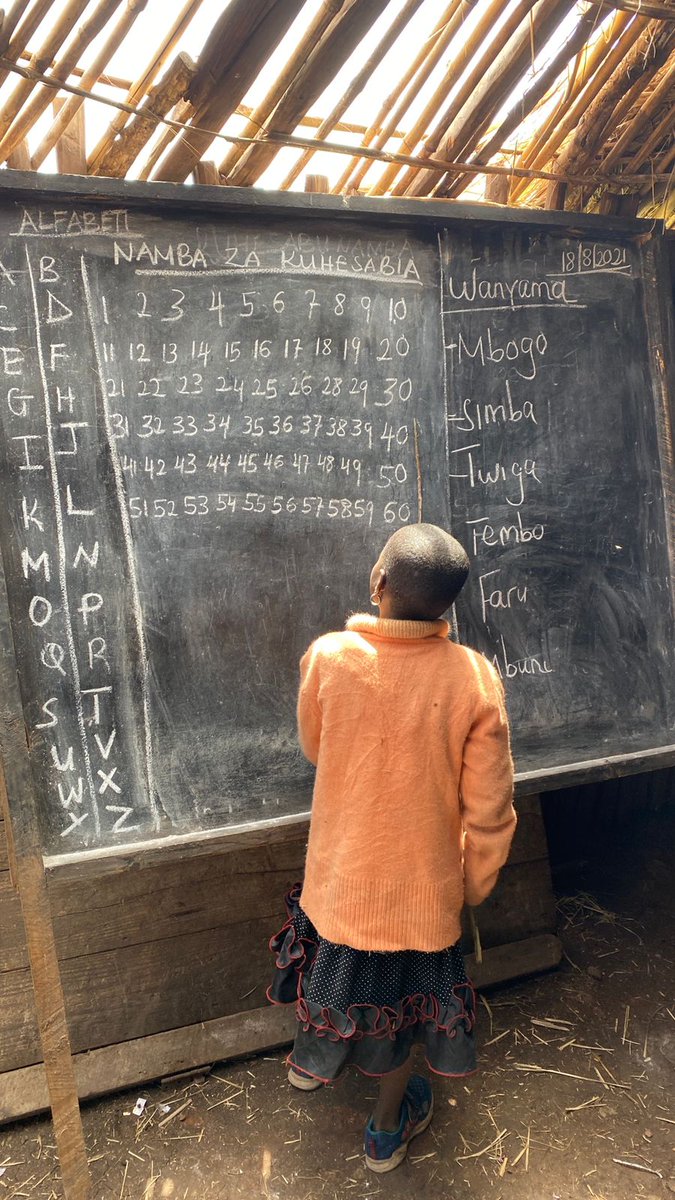 ALFABETI
A B
C D
E F
G H
I J
K L
M N
O P
Q R
S T
U V
W X
Y Z
NAMBA ZA KUHESABIA
1 2 3 4 5 6 7 8 9 10
11 12 13 14 15 16 17 18 19 20
21 22 23 24 25 26 28 29 30
31 32 33 34 35 36 37 38 39 40
41 42 43 44 45 46 47 48 49 50
51 52 53 54 55 56 57 58 59 60
18/8/2021
Wanyama
-Mbogo
-Simba
-Twiga
Tembo
Faru
Mbuni